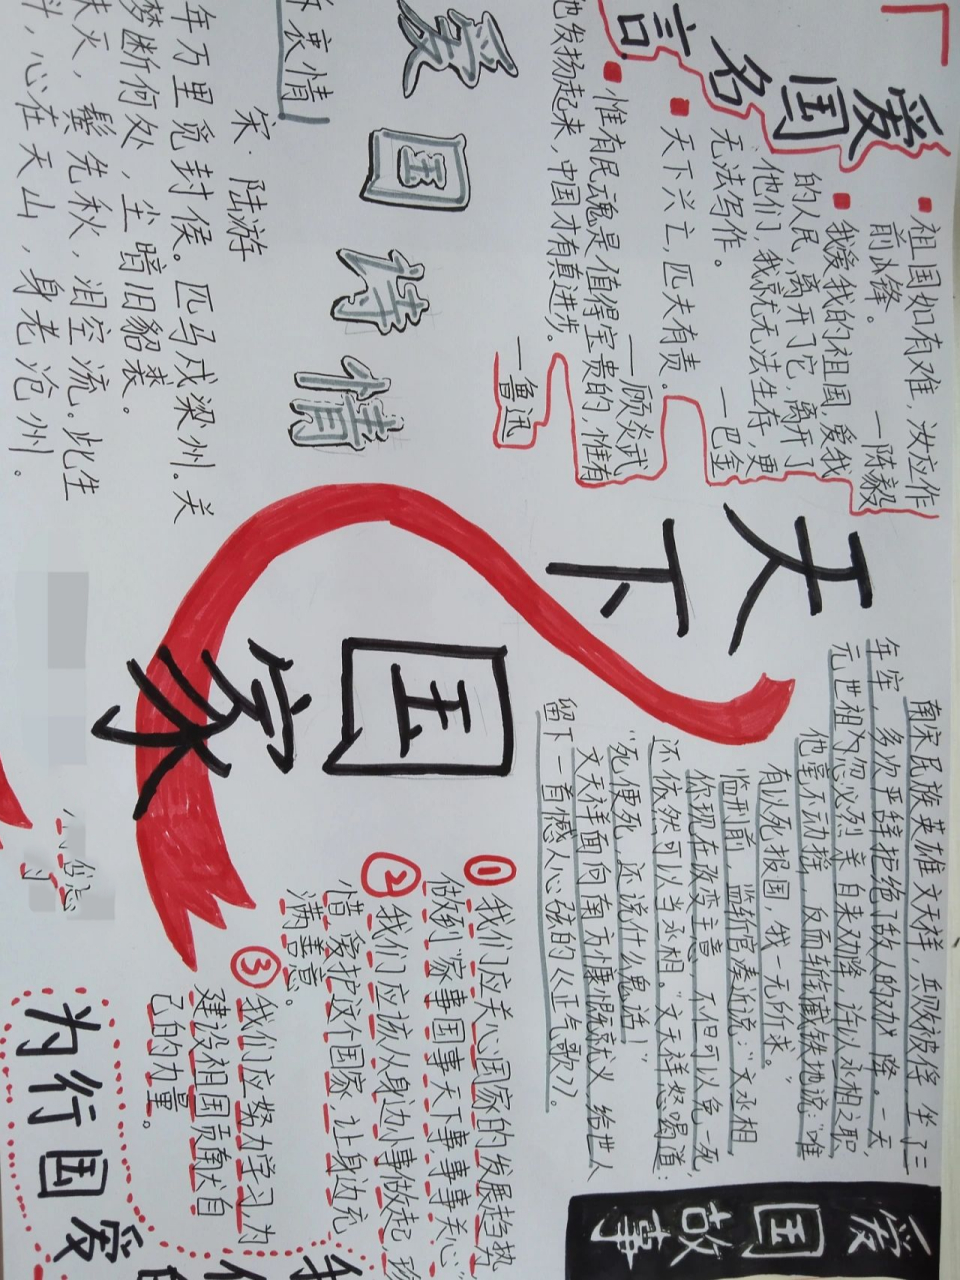 爱国名言
祖国如有难，汝应作
前火锋。
一陈毅
我爱我的祖国，爱我
的人民，离开了它，离开了
他们，我就无法生存，更
无法写作。
一巴金
天下兴亡，匹夫有责。
——顾炎武
惟有民魂是值得宝贵的，惟有
他发扬起来，中国才有真进步。
—鲁迅
爱国诗情
诉衷情
宋·陆游
年万里觅封侯。匹马戍梁州。关
梦断何处，尘暗旧貂裘。
未灭，鬓先秋，泪空流。此生
料，心在天山，身老沧州。
天下
国家
爱国故事
南宋民族英雄文天祥，兵败被俘，坐了三
年牢，多次严辞拒绝了敌人的劝降。一天
元世祖忽必烈亲自来劝降，许以丞相之职，
他毫不动摇，反而斩钉截铁地说：“唯
有以死报国，我一无所求。”
临刑前，监斩官凑近说：“文丞相
你现在改变主意，不但可以免一死
还依然可以当丞相。”文天祥怒喝道：
“死便死，还说什么鬼话！”
文天祥面向南方慷慨就义，给世人
留下一首憾人心弦的《正气歌》。
①我们应关心国家的发展趋势
做到“家事国事天下事事事关心”
②我们应该从身边小事做起，珍
惜、爱护这个国家，让身边充
满善意。
③我们应努力学习，为
建设祖国贡献大自
己的力量。
为行国爱